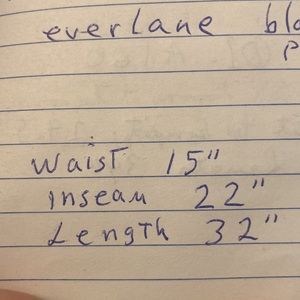 everlane
Waist 15"
Inseam 22"
Length 32"